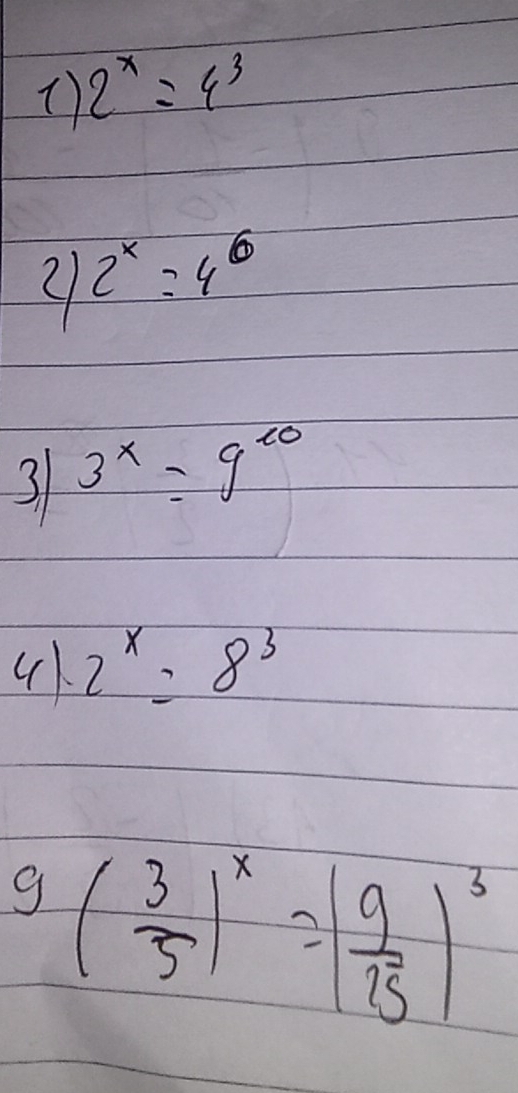 1) 2^x = 4^3
2) 2^x = 4^6
3) 3^x = 9^10
4) 2^x = 8^3
9 (3/5)^x = (9/25)^3